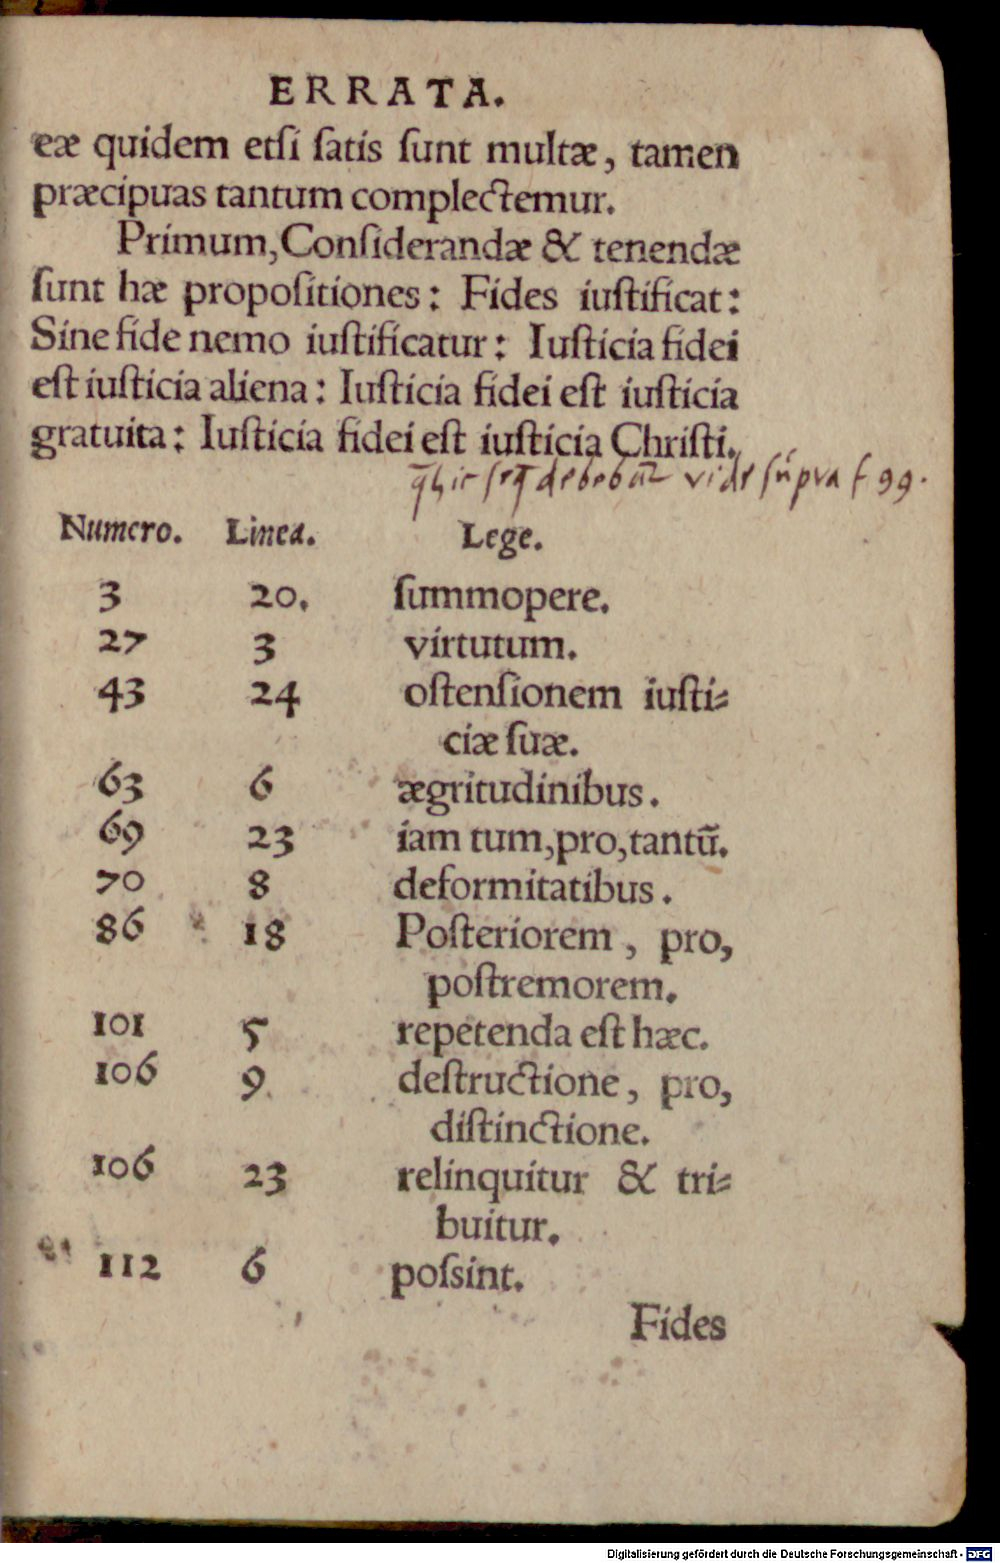 ERRATA.
eæ quidem etſi ſatis ſunt multæ, tamen
præcipuas tantum complectemur.
Primum, Conſiderandæ & tenendæ
ſunt hæ propoſitiones: Fides iuſtificat:
Sine fide nemo iuſtificatur: Iuſticia fidei
eſt iuſticia aliena: Iuſticia fidei eſt iuſticia
gratuita: Iuſticia fidei eſt iuſticia Chriſti.
hic debebāt vide ſupra f 99.
Numero. Linea. Lege.
3 20. ſummopere.
27 3 virtutum.
43 24 oſtenſionem iuſti⸗
ciæ ſuæ.
63 6 ægritudinibus.
69 23 iam tum, pro, tantū.
70 8 deformitatibus.
86 18 Poſteriorem, pro,
poſtremorem.
101 5 repetenda eſt hæc.
106 9 deſtructione, pro,
diſtinctione.
106 23 relinquitur & tri⸗
buitur.
112 6 poſsint.
Fides
Digitalisierung gefördert durch die Deutsche Forschungsgemeinschaft - DFG